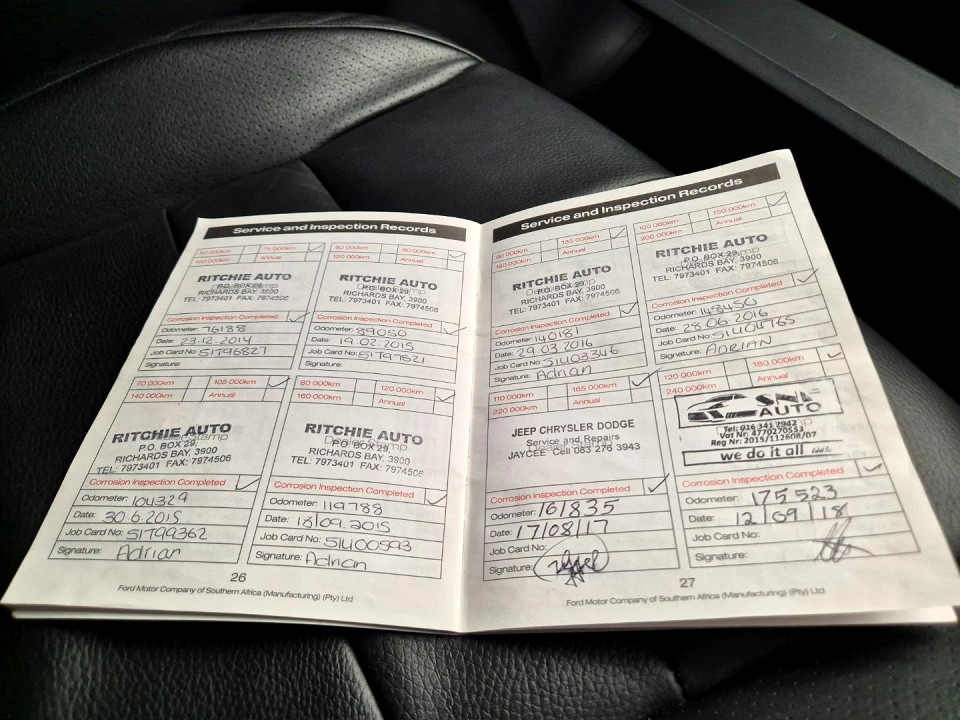 Service and Inspection Records
75 000km
90 000km
Annual
Annual
RITCHIE AUTO
P.O. BOX 29,
RICHARDS BAY, 3900
TEL: 7973401 FAX: 7974506
Corrosion Inspection Completed
Odometer: 76188
Date: 23-12-2014
Job Card No: 51796827
Signature:
60 000km
90 000km
120 000km
Annual
RITCHIE AUTO
P.O. BOX 29,
RICHARDS BAY, 3900
TEL: 7973401 FAX: 7974506
Corrosion Inspection Completed
Odometer: 89050
Date: 19.02.2015
Job Card No: 51797521
Signature:
70 000km
105 000km
140 000km
Annual
RITCHIE AUTO
P.O. BOX 29,
RICHARDS BAY, 3900
TEL: 7973401 FAX: 7974506
Corrosion Inspection Completed
Odometer: 104329
Date: 30.6.2015
Job Card No: 51799362
Signature: Adrian
80 000km
120 000km
160 000km
Annual
RITCHIE AUTO
Dealer Stamp
P.O. BOX 29,
RICHARDS BAY, 3900
TEL: 7973401 FAX: 7974506
Corrosion Inspection Completed
Odometer: 119788
Date: 18/09.2015
Job Card No: 51400593
Signature: Adrian
26
Ford Motor Company of Southern Africa (Manufacturing) (Pty) Ltd
Service and Inspection Records
90 000km
135 000km
180 000km
Annual
RITCHIE AUTO
P.O. BOX 29,
RICHARDS BAY, 3900
TEL: 7973401 FAX: 7974506
Corrosion Inspection Completed
Odometer: 140181
Date: 29.03.2016
Job Card No: 51403346
Signature: Adrian
100 000km
150 000km
200 000km
Annual
RITCHIE AUTO
P.O. BOX 29,
RICHARDS BAY, 3900
TEL: 7973401 FAX: 7974506
Corrosion Inspection Completed
Odometer: 148450
Date: 28.06.2016
Job Card No: 51404765
Signature: ADRIAN
110 000km
165 000km
220 000km
Annual
JEEP CHRYSLER DODGE
Service and Repairs
JAYCEE Cell 083 276 3943
Corrosion Inspection Completed
Odometer: 161835
Date: 17/08/17
Job Card No:
Signature:
120 000km
180 000km
240 000km
Annual
AUTO
Tel: 016 341 2942
Vat Nr: 4770270553
Reg Nr: 2015/112608/07
we do it all
Corrosion Inspection Completed
Odometer: 175 523
Date: 12/09/18
Job Card No:
Signature:
27
Ford Motor Company of Southern Africa (Manufacturing) (Pty) Ltd